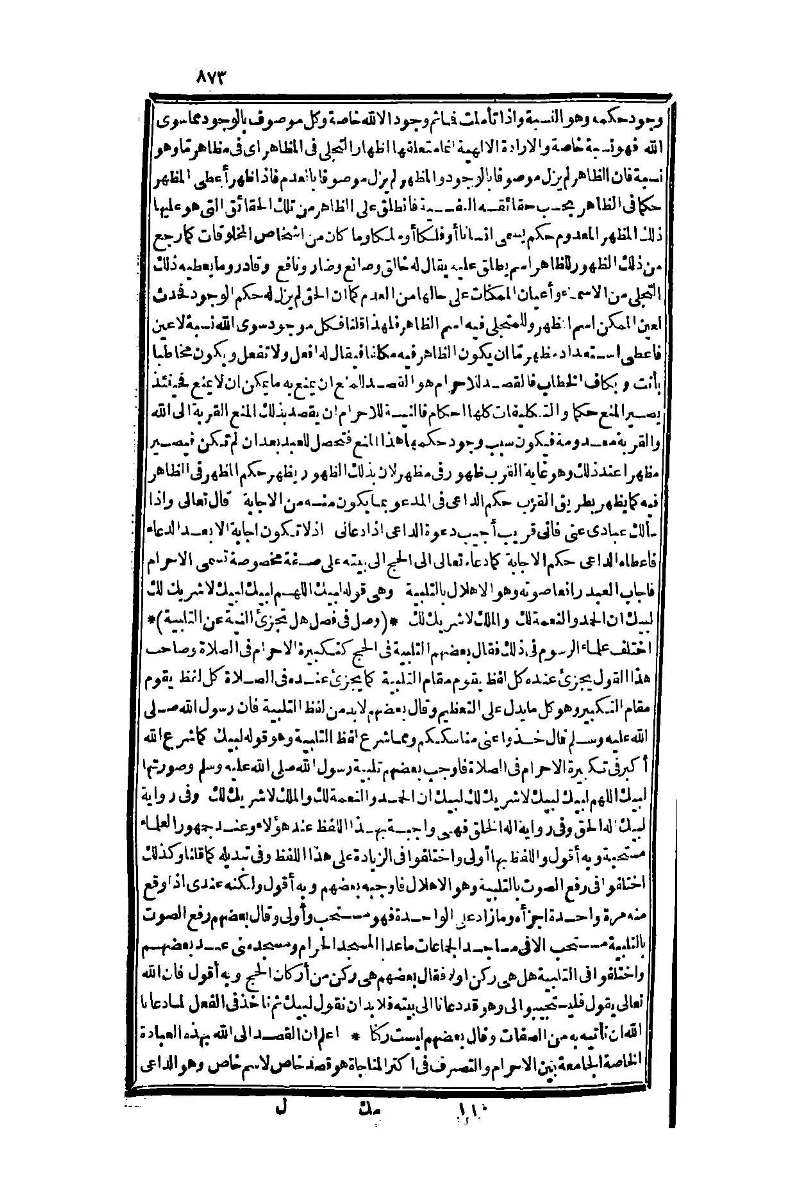 ٨٧٣
وجود حكمه وهو النسبة واذا تأملت فما ثم وجود الا لله خاصة وكل موصوف بالوجود مما سوى
الله فهو نسبة خاصة والارادة الالهية انما متعلقها اظهار التجلى فى المظاهر اى فى مظاهر ما وهو
نسبة فان الظاهر لم يزل موصوفا بالوجود والمظهر لم يزل موصوفا بالعدم فاذا ظهر أعطى المظهر
حكما فى الظاهر بحسب حقائقه النفسية فانطلق على الظاهر من تلك الحقائق التى هو عليها
ذلك المظهر المعدوم حكم يسمى انسانا أو فلكا أو ملكا وما كان من اشخاص المخلوقات كما رجع
من ذلك الظهور للظاهر اسم يطلق عليه يقال له خالق وصانع وضار ونافع وقادر وما يعطيه ذلك
التجلى من الاسماء وأعيان الممكنات على حالها من العدم كما ان الحق لم يزل له حكم الوجود فحدث
لعين الممكن اسم المظهر وللمتجلى فيه اسم الظاهر فلهذا قلنا فكل موجود سوى الله نسبة لا عين
فاعطى استعداد مظهر ما ان يكون الظاهر فيه مكلفا فيقال له افعل ولا تفعل ويكون مخاطبا
بأنت وبكاف الخطاب فالقصد للاحرام هو القصد للمنع ان يمنع به ما يمكن ان لا يمنع فحينئذ
يصير المنع حكما والتكليفات كلها احكام فالنية للاحرام ان يقصد بذلك المنع القربة الى الله
والقربة معدومة فيكون سبب وجود حكمها هذا المنع فتحصل للعبد بعد ان لم تكن فيصير
مظهرا عند ذلك وهو غاية القرب ظهور فى مظهر لان بذلك الظهور يظهر حكم المظهر فى الظاهر
فيه كما يظهر بطريق القرب حكم الداعى فى المدعو بما يكون منه من الاجابة قال تعالى واذا
سألك عبادى عنى فانى قريب أجيب دعوة الداعى اذا دعانى اذ لا تكون اجابة الا بعد الدعاء
فاعطاه الداعى حكم الاجابة كما دعاه تعالى الى الحج الى بيته على صفة مخصوصة تسمى الاحرام
فاجاب العبد رافعا صوته وهو الاهلال بالتلبية وهى قوله لبيك اللهم لبيك لبيك لا شريك لك
لبيك ان الحمد والنعمة لك والملك لا شريك لك *(وصل فى فصل هل تجزئ النية عن التلبية)*
اختلف علماء الرسوم فى ذلك فقال بعضهم التلبية فى الحج كتكبيرة الاحرام فى الصلاة وصاحب
هذا القول يجزئ عنده كل لفظ يقوم مقام التلبية كما يجزئ عنده فى الصلاة كل لفظ يقوم
مقام التكبير وهو كل ما يدل على التعظيم وقال بعضهم لا بد من لفظ التلبية فان رسول الله صلى
الله عليه وسلم قال خذوا عنى مناسككم ومما شرع لفظ التلبية وهو قوله لبيك كما شرع الله
أكبر فى تكبيرة الاحرام فى الصلاة فاوجب بعضهم تلبية رسول الله صلى الله عليه وسلم وصورتها
لبيك اللهم لبيك لبيك لا شريك لك لبيك ان الحمد والنعمة لك والملك لا شريك لك وفى رواية
لبيك اله الحق وفى رواية اله الخلق فهى واجبة بهذا اللفظ عند هؤلاء وعند جمهور العلماء
مستحبة وبه أقول واللفظ بها أولى واختلفوا فى الزيادة على هذا اللفظ وفى تبديله كما قلنا وكذلك
اختلفوا فى رفع الصوت بالتلبية وهو الاهلال فاوجبه بعضهم وبه أقول ولكنه عندى اذا وقع
منه مرة واحدة اجزأه وما زاد على الواحدة فهو مستحب وأولى وقال بعضهم رفع الصوت
بالتلبية مستحب الا فى مساجد الجماعات ماعدا المسجد الحرام ومسجد منى عند بعضهم
واختلفوا فى التلبية هل هى ركن اولا فقال بعضهم هى ركن من أركان الحج وبه أقول فان الله
تعالى يقول فليستجيبوا لى وهو قد دعانا الى بيته فلا بد ان نقول لبيك ثم نأخذ فى الفعل لما دعانا
الله ان نأتيه به من الصفات وقال بعضهم ليست ركنا * اعلم ان القصد الى الله بهذه العبادة
الخاصة الجامعة بين الاحرام والتصرف فى اكثر المناجاة هو قصد خاص لاسم خاص وهو الداعى
١١٠ مك ل